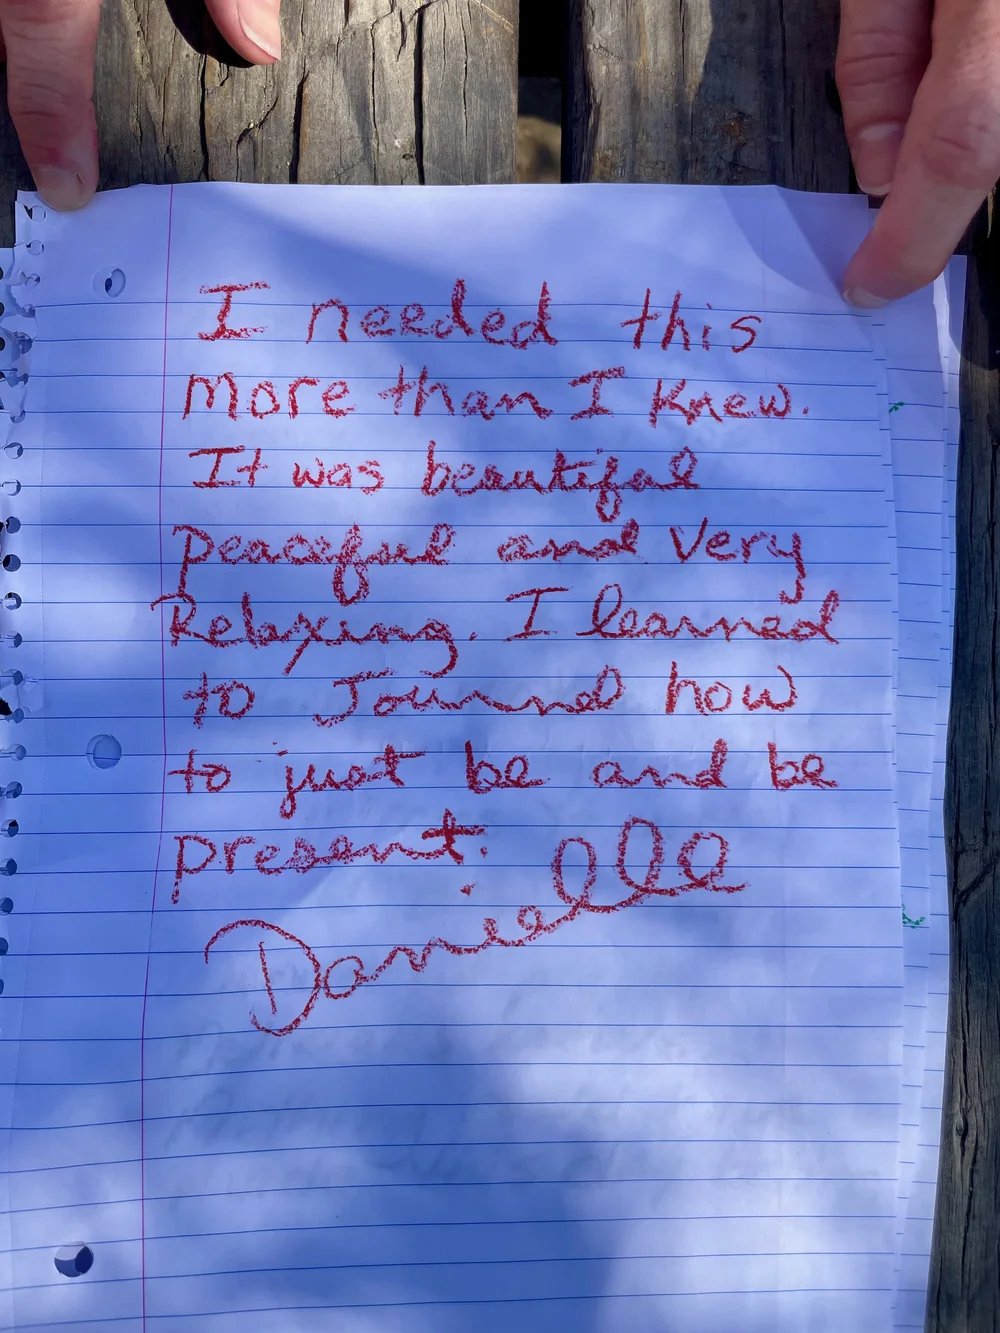 I needed this
more than I Knew.
It was beautiful
peaceful and Very
Relaxing. I learned
to Journal how
to just be and be
present.
Danielle